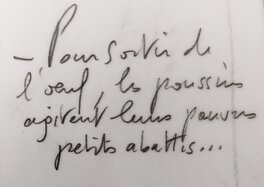 – Pour sortir de
l'oeuf, les poussins
agitent leurs pauvres
petits abattis...